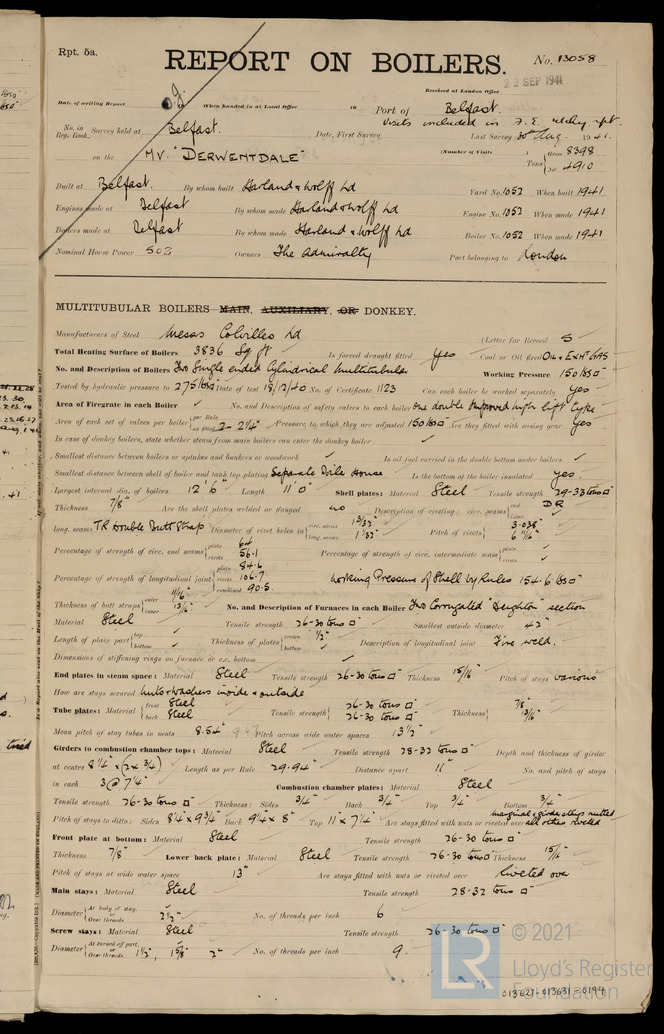 Rpt. 5a.
REPORT ON BOILERS.
No. 13058
Received at London Office
22 SEP 1941
Date of writing Report
When handed in at Local Office
Port of Belfast.
No. in Reg. Book.
Survey held at Belfast.
Date, First Survey
Visits included in F.E. rpt.
Last Survey 30th Aug. 1941.
on the MV. "DERWENTDALE"
(Number of Visits )
Tons Gross 8398
Net 4910
Built at Belfast. By whom built Harland & Wolff Ld Yard No. 1052 When built 1941
Engines made at Belfast By whom made Harland & Wolff Ld Engine No. 1052 When made 1941
Boilers made at Belfast By whom made Harland & Wolff Ld Boiler No. 1052 When made 1941
Nominal Horse Power 502 Owners The Admiralty Port belonging to London
MULTITUBULAR BOILERS MAIN, AUXILIARY, OR DONKEY.
Manufacturers of Steel Messrs Colvilles Ld (Letter for Record S
Total Heating Surface of Boilers 3836 Sq ft Is forced draught fitted Yes Coal or Oil fired Oil & EXHT GAS
No. and Description of Boilers Two Single ended Cylindrical Multitubular Working Pressure 150 lbs□
Tested by hydraulic pressure to 275 lbs□ Date of test 18/12/40 No. of Certificate 1123 Can each boiler be worked separately yes
Area of Firegrate in each Boiler ✓ No. and Description of safety valves to each boiler One double Improved high lift type
Area of each set of valves per boiler per Rule as fitted 2-2¼" Pressure to which they are adjusted 150 lbs□ Are they fitted with easing gear Yes
In case of donkey boilers, state whether steam from main boilers can enter the donkey boiler ✓
Smallest distance between boilers or uptakes and bunkers or woodwork ✓ Is oil fuel carried in the double bottom under boilers ✓
Smallest distance between shell of boiler and tank top plating Separate Boiler House Is the bottom of the boiler insulated yes.
Largest internal dia. of boilers 12' 6" Length 11' 0" Shell plates: Material Steel Tensile strength 29-33 tons□
Thickness 7/8" Are the shell plates welded or flanged no Description of riveting: circ. seams end DR
inter. ✓
long. seams TR Double Butt Strap Diameter of rivet holes in circ. seams 1 3/32"
long. seams 1 1/32" Pitch of rivets 3.038"
6 11/16"
Percentage of strength of circ. end seams plate 64
rivets 56.1 Percentage of strength of circ. intermediate seam plate ✓
rivets ✓
Percentage of strength of longitudinal joint plate 84.6
rivets 106.7
combined 90.5 Working Pressure of Shell by Rules 154.6 lbs□
Thickness of butt straps outer 11/16"
inner 13/16" No. and Description of Furnaces in each Boiler Two Corrugated "Deighton" section
Material Steel Tensile strength 26-30 tons□ Smallest outside diameter 42"
Length of plain part top ✓
bottom ✓ Thickness of plates crown ½"
bottom Description of longitudinal joint Fire weld.
Dimensions of stiffening rings on furnace or c.c. bottom ✓
End plates in steam space: Material Steel Tensile strength 26-30 tons□ Thickness 15/16" Pitch of stays various
How are stays secured Nuts & washers inside & outside
Tube plates: Material front Steel
back Steel Tensile strength 26-30 tons□
26-30 tons□ Thickness 7/8"
13/16"
Mean pitch of stay tubes in nests 8.54" Pitch across wide water spaces 13½"
Girders to combustion chamber tops: Material Steel Tensile strength 28-32 tons□ Depth and thickness of girder
at centre 8¼" x (2 x ¾") Length as per Rule 29.94" Distance apart 11" No. and pitch of stays
in each 3 @ 7¼" Combustion chamber plates: Material Steel
Tensile strength 26-30 tons□ Thickness: Sides ¾" Back ¾" Top ¾" Bottom ¾"
Pitch of stays to ditto: Sides 8¼" x 9¾" Back 9¼" x 8" Top 11" x 7¼" Are stays fitted with nuts or riveted over marginal & girder stays nutted all others riveted
Front plate at bottom: Material Steel Tensile strength 26-30 tons□
Thickness 7/8" Lower back plate: Material Steel Tensile strength 26-30 tons□ Thickness 15/16"
Pitch of stays at wide water space 13" Are stays fitted with nuts or riveted over riveted over
Main stays: Material Steel Tensile strength 28-32 tons□
Diameter At body of stay,
Over threads 2½" No. of threads per inch 6
Screw stays: Material Steel Tensile strength 26-30 tons□
Diameter At turned off part,
Over threads 1½", 1⅝" 2" No. of threads per inch 9.
© 2021
Lloyd's Register
Foundation
013621-013631-0194